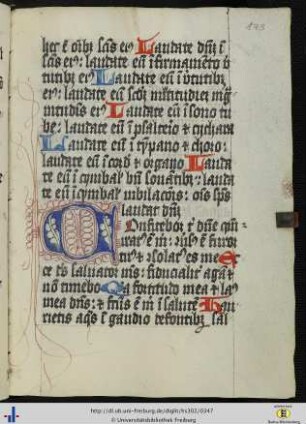 173
her ē oībꝫ scīs eiꝰ Laudate dn̄m ī
scīs eiꝰ: laudate eū ī firmamēto v̓
tutibꝫ eiꝰ Laudate eū ī v̓tutibꝫ
eiꝰ: laudate eū scd̄m multitudinē mag̓
nitudinis eiꝰ Laudate eū ī sono tu
be: laudate eū ī psalteīo & cythara
Laudate eū ī tympano & choro:
laudate eū ī cord̓ & organo Lauda
te eū ī cymbal̓ bn̄ sonantibꝫ: lauda
te eū ī cymbal̓ iubilacōis: oīs sp̄s
laudat dn̄m
Confitebor t̓ dn̄e qm̄
iratꝰ es m̄: ꝯv̓sꝰ ē furor
tuꝰ & ꝯsolatꝰ es me E
ce dꝰs saluator mꝰs: fiducialit̓ agā &
nō timebo Qa fortitudo mea & laꝰ
mea dn̄s: & fcūs ē m̄ ī salutē Hau
rietis aq̄s ī gaudio de fontibꝫ sal
http://dl.ub.uni-freiburg.de/diglit/hs302/0347
© Universitätsbibliothek Freiburg